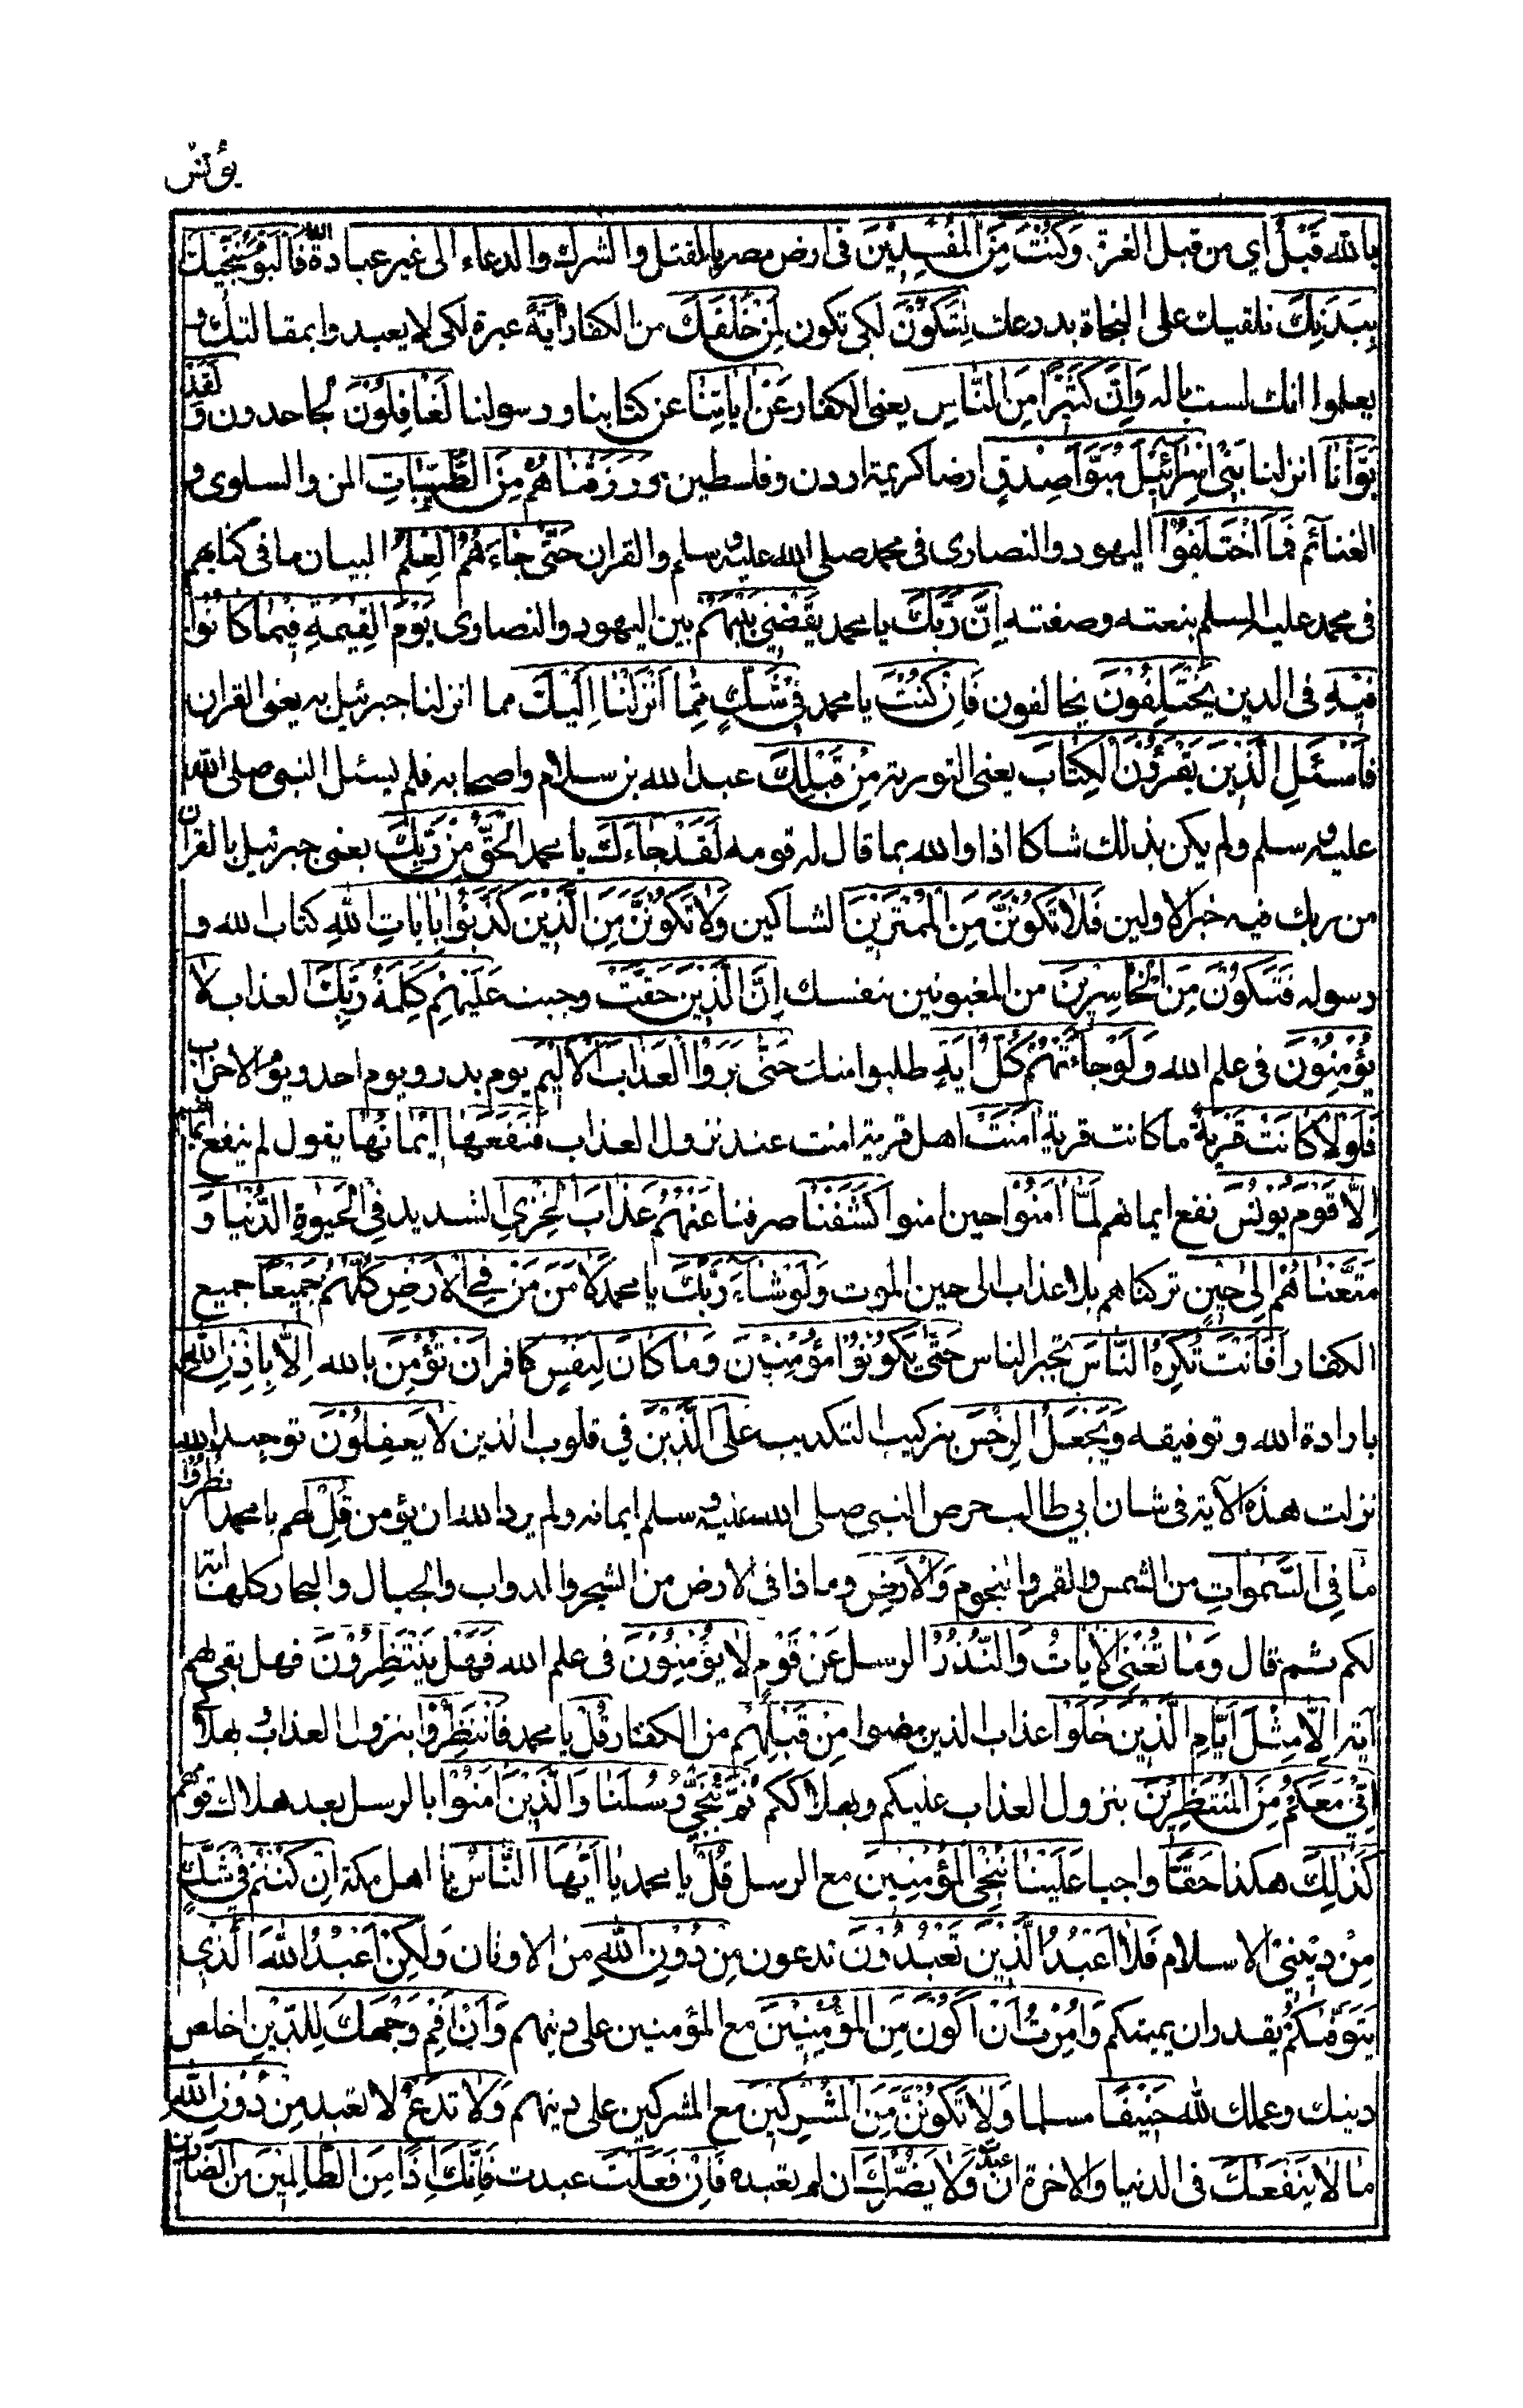 يونس
بالله قَبْلُ اي من قبل الغرق وَكُنْتَ مِنَ الْمُفْسِدِيْنَ في ارض مصر بالقتل والشرك والدعاء الى غير عبادة الله فَالْيَوْمَ نُنَجِّيْكَ
بِبَدَنِكَ نلقيك على النجاة بدرعك لِتَكُوْنَ لكي تكون لِمَنْ خَلْفَكَ من الكفار اٰيَةً عبرة لكي لا يعبدوا بمقالتك و
يعلموا انك لست باله وَاِنَّ كَثِيْرًا مِنَ النَّاسِ يعني الكفار عَنْ اٰيَاتِنَا عن كتابنا ورسولنا لَغَافِلُوْنَ لجاحدون وَلَقَدْ
بَوَّاْنَا انزلنا بَنِيْ اِسْرَائِيْلَ مُبَوَّاَ صِدْقٍ ارضا كريمة اردن وفلسطين وَرَزَقْنَاهُمْ مِنَ الطَّيِّبَاتِ المن والسلوى و
الغنائم فَمَا اخْتَلَفُوْا اليهود والنصارى في محمد صلى الله عليه وسلم والقران حَتّٰى جَاءَهُمُ الْعِلْمُ البيان ما في كتابهم
في محمد عليه السلام بنعته وصفته اِنَّ رَبَّكَ يا محمد يَقْضِيْ بَيْنَهُمْ بين اليهود والنصارى يَوْمَ الْقِيٰمَةِ فِيْمَا كَانُوْا
فِيْهِ في الدين يَخْتَلِفُوْنَ يخالفون فَاِنْ كُنْتَ يا محمد فِيْ شَكٍّ مِمَّا اَنْزَلْنَا اِلَيْكَ مما انزلنا جبرئيل به يعني القران
فَاسْئَلِ الَّذِيْنَ يَقْرَؤُنَ الْكِتَابَ يعني التورية مِنْ قَبْلِكَ عبد الله بن سلام واصحابه فلم يسئل النبي صلى الله
عليه وسلم ولم يكن بذلك شاكا اذا والله بما قال له قومه لَقَدْ جَاءَكَ يا محمد الْحَقُّ مِنْ رَبِّكَ يعني جبرئيل بالقران
من ربك فيه خبر الاولين فَلَا تَكُوْنَنَّ مِنَ الْمُمْتَرِيْنَ الشاكين وَلَا تَكُوْنَنَّ مِنَ الَّذِيْنَ كَذَّبُوْا بِاٰيَاتِ اللهِ كتاب الله و
رسوله فَتَكُوْنَ مِنَ الْخَاسِرِيْنَ من المغبونين بنفسك اِنَّ الَّذِيْنَ حَقَّتْ وجبت عَلَيْهِمْ كَلِمَةُ رَبِّكَ لعذاب لَا
يُؤْمِنُوْنَ في علم الله وَلَوْ جَاءَتْهُمْ كُلُّ اٰيَةٍ طلبوا منك حَتّٰى يَرَوُا الْعَذَابَ الْاَلِيْمَ يوم بدر ويوم احد ويوم الاحزاب
فَلَوْلَا كَانَتْ قَرْيَةٌ ما كانت قرية اٰمَنَتْ اهل قرية امنت عند نزول العذاب فَنَفَعَهَا اِيْمَانُهَا يقول لم ينفع ايمانهم
اِلَّا قَوْمَ يُوْنُسَ نفع ايمانهم لَمَّا اٰمَنُوْا حين امنوا كَشَفْنَا صرفنا عَنْهُمْ عَذَابَ الْخِزْيِ الشديد فِي الْحَيٰوةِ الدُّنْيَا وَ
مَتَّعْنَاهُمْ اِلٰى حِيْنٍ تركناهم بلا عذاب الى حين الموت وَلَوْ شَاءَ رَبُّكَ يا محمد لَاٰمَنَ مَنْ فِي الْاَرْضِ كُلُّهُمْ جَمِيْعًا جميع
الكفار اَفَاَنْتَ تُكْرِهُ النَّاسَ تجبر الناس حَتّٰى يَكُوْنُوْا مُؤْمِنِيْنَ وَمَا كَانَ لِنَفْسٍ كافر اَنْ تُؤْمِنَ بالله اِلَّا بِاِذْنِ اللهِ
بارادة الله وتوفيقه وَيَجْعَلُ الرِّجْسَ بتركيب التكذيب عَلَى الَّذِيْنَ في قلوب الذين لَا يَعْقِلُوْنَ توحيد الله
نزلت هذه الآية في شان ابي طالب حرص النبي صلى الله عليه وسلم ايمانه ولم يرد الله ان يؤمن قُلِ لهم يا محمد انْظُرُوْا
مَاذَا فِي السَّمٰوَاتِ من الشمس والقمر والنجوم وَالْاَرْضِ وماذا في الارض من الشجر والدواب والجبال والبحار كلها اية
لكم ثم قال وَمَا تُغْنِي الْاٰيَاتُ وَالنُّذُرُ الرسل عَنْ قَوْمٍ لَا يُؤْمِنُوْنَ في علم الله فَهَلْ يَنْتَظِرُوْنَ فهل بقى لهم
آية اِلَّا مِثْلَ اَيَّامِ الَّذِيْنَ خَلَوْا عذاب الذين مضوا مِنْ قَبْلِهِمْ من الكفار قُلْ يا محمد فَانْتَظِرُوْا بنزول العذاب بهلاككم
اِنِّيْ مَعَكُمْ مِنَ الْمُنْتَظِرِيْنَ بنزول العذاب عليكم وبهلاككم ثُمَّ نُنَجِّيْ رُسُلَنَا وَالَّذِيْنَ اٰمَنُوْا بالرسل بعد هلاك قومهم
كَذٰلِكَ هكذا حَقًّا واجبا عَلَيْنَا نُنْجِي الْمُؤْمِنِيْنَ مع الرسل قُلْ يا محمد يَا اَيُّهَا النَّاسُ يا اهل مكة اِنْ كُنْتُمْ فِيْ شَكٍّ
مِنْ دِيْنِيْ الاسلام فَلَا اَعْبُدُ الَّذِيْنَ تَعْبُدُوْنَ تدعون مِنْ دُوْنِ اللهِ من الاوثان وَلٰكِنْ اَعْبُدُ اللهَ الَّذِيْ
يَتَوَفّٰىكُمْ يقدر ان يميتكم وَاُمِرْتُ اَنْ اَكُوْنَ مِنَ الْمُؤْمِنِيْنَ مع المؤمنين على دينهم وَاَنْ اَقِمْ وَجْهَكَ لِلدِّيْنِ اخلص
دينك وعملك لله حَنِيْفًا مسلما وَلَا تَكُوْنَنَّ مِنَ الْمُشْرِكِيْنَ مع المشركين على دينهم وَلَا تَدْعُ لا تعبد مِنْ دُوْنِ اللهِ
مَا لَا يَنْفَعُكَ في الدنيا والاخرة ان عبدته وَلَا يَضُرُّكَ ان لم تعبده فَاِنْ فَعَلْتَ عبدت فَاِنَّكَ اِذًا مِنَ الظَّالِمِيْنَ من الضارين